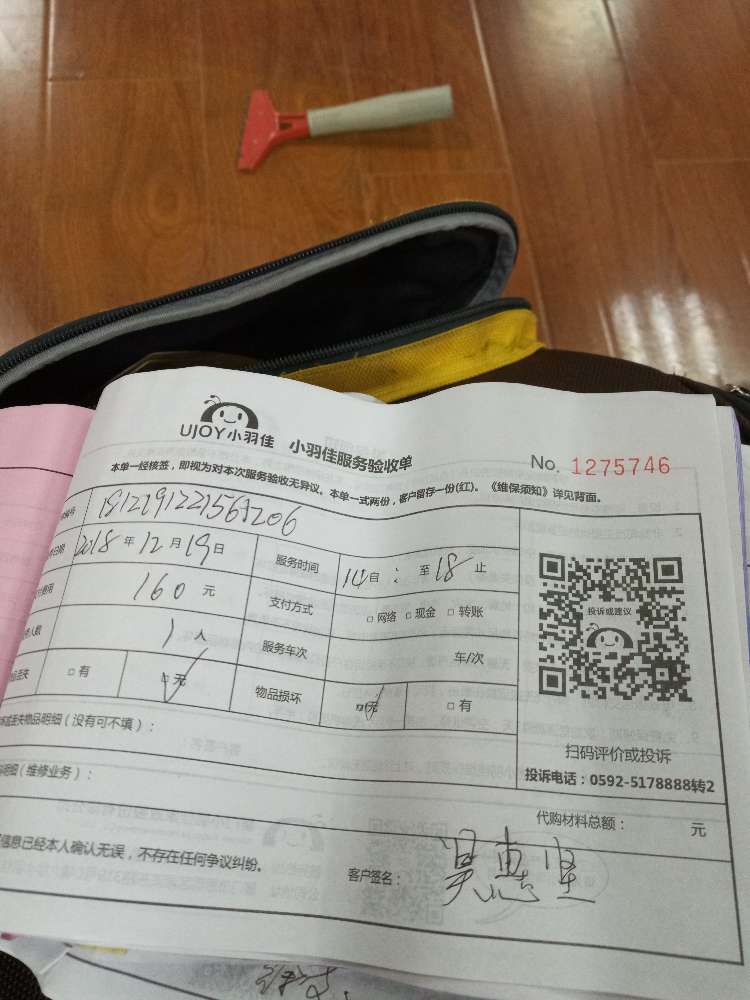 UJOY小羽佳 小羽佳服务验收单 No. 1275746
本单一经核签，即视为对本次服务验收无异议。本单一式两份，客户留存一份(红)。《维保须知》详见背面。
编号
日期 2018 年 12 月 19 日 服务时间 14 自 : 至 18 止
费用 160 元 支付方式 □ 网络 □ 现金 □ 转账
人数 1 人 服务车次 车/次
丢失 □ 有 □ 无 物品损坏 □ 无 □ 有
投诉或建议
丢失物品明细（没有可不填）：
扫码评价或投诉
明细（维修业务）：
投诉电话：0592-5178888转2
代购材料总额： 元
信息已经本人确认无误，不存在任何争议纠纷。
客户签名： 吴惠